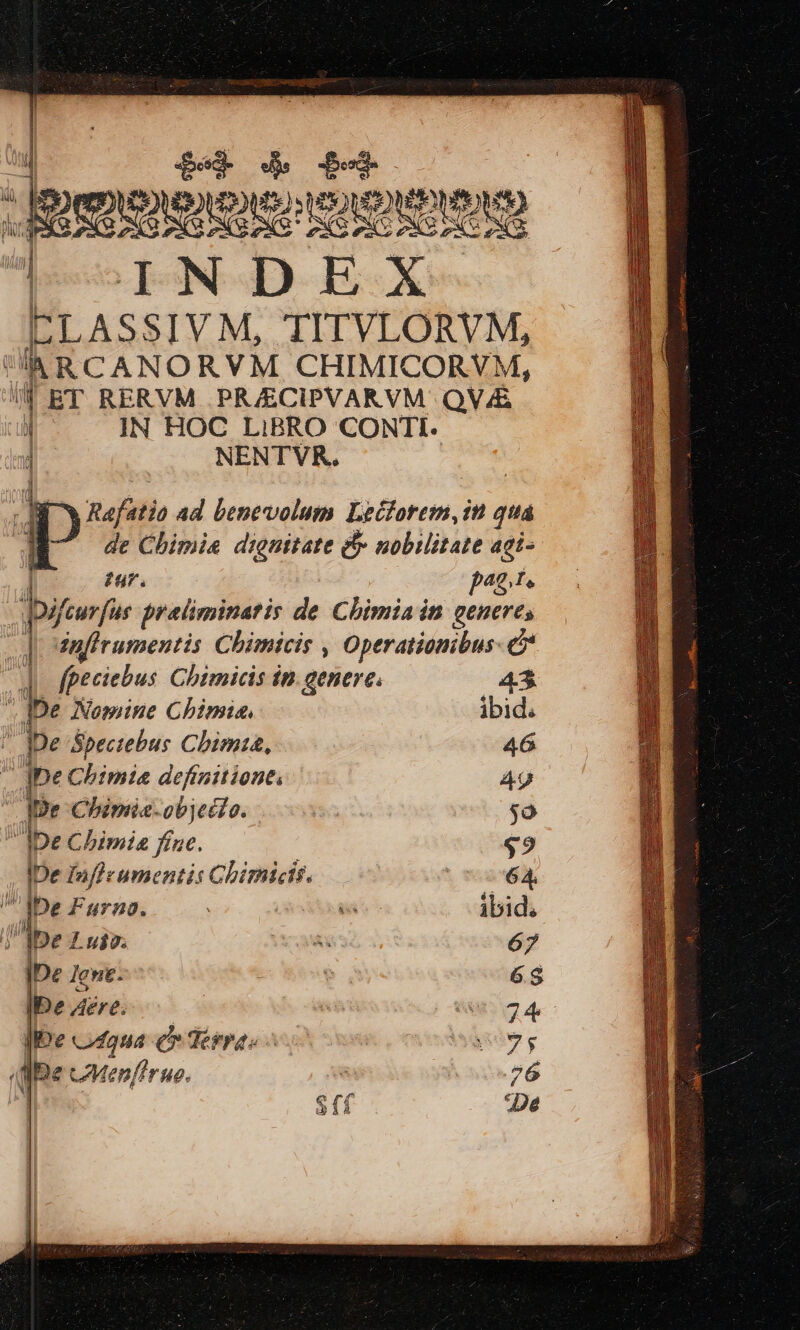 INDEX
CLASSIVM, TITVLORVM,
ARCANORVM CHIMICORVM,
ET RERVM PRÆCIPVARVM QVÆ
IN HOC LIBRO CONTI-
NENTVR.
PRæfatio ad benevolum Lectorem, in quâ
de Chimiæ dignitate & nobilitate agi-
tur. pag.1.
Diſcurſus præliminaris de Chimia in genere,
inſtrumentis Chimicis, Operationibus &
ſpeciebus Chimicis in genere. 43
De Nomine Chimiæ. ibid.
De Speciebus Chimiæ, 46
De Chimiæ definitione. 49
De Chimiæ objecto. 50
De Chimiæ fine. 59
De Inſtrumentis Chimicis. 64
De Furno. ibid.
De Luto. 67
De Igne. 68
De Aëre. 74
De Aqua & Terra. 75
De Menſtruo. 76
Sſſ De